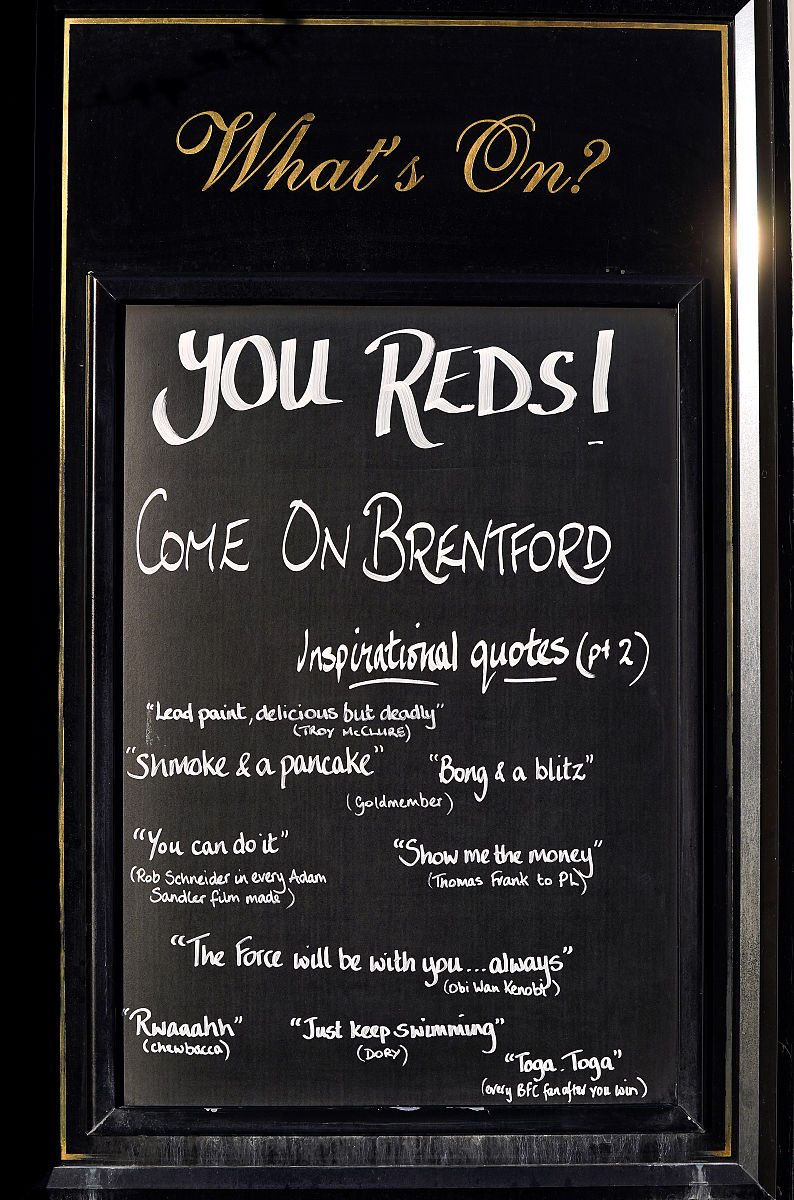 What's On?
YOU REDS!
COME ON BRENTFORD
Inspirational quotes (pt 2)
"Lead paint, delicious but deadly"
(TROY McCLURE)
"Shmoke & a pancake" "Bong & a blitz"
(Goldmember)
"You can do it" "Show me the money"
(Rob Schneider in every Adam Sandler film made) (Thomas Frank to PL)
"The Force will be with you...always"
(Obi Wan Kenobi)
"Rwaaahh" "Just keep swimming"
(chewbacca) (DORY)
"Toga. Toga"
(every BFC fan after you win)